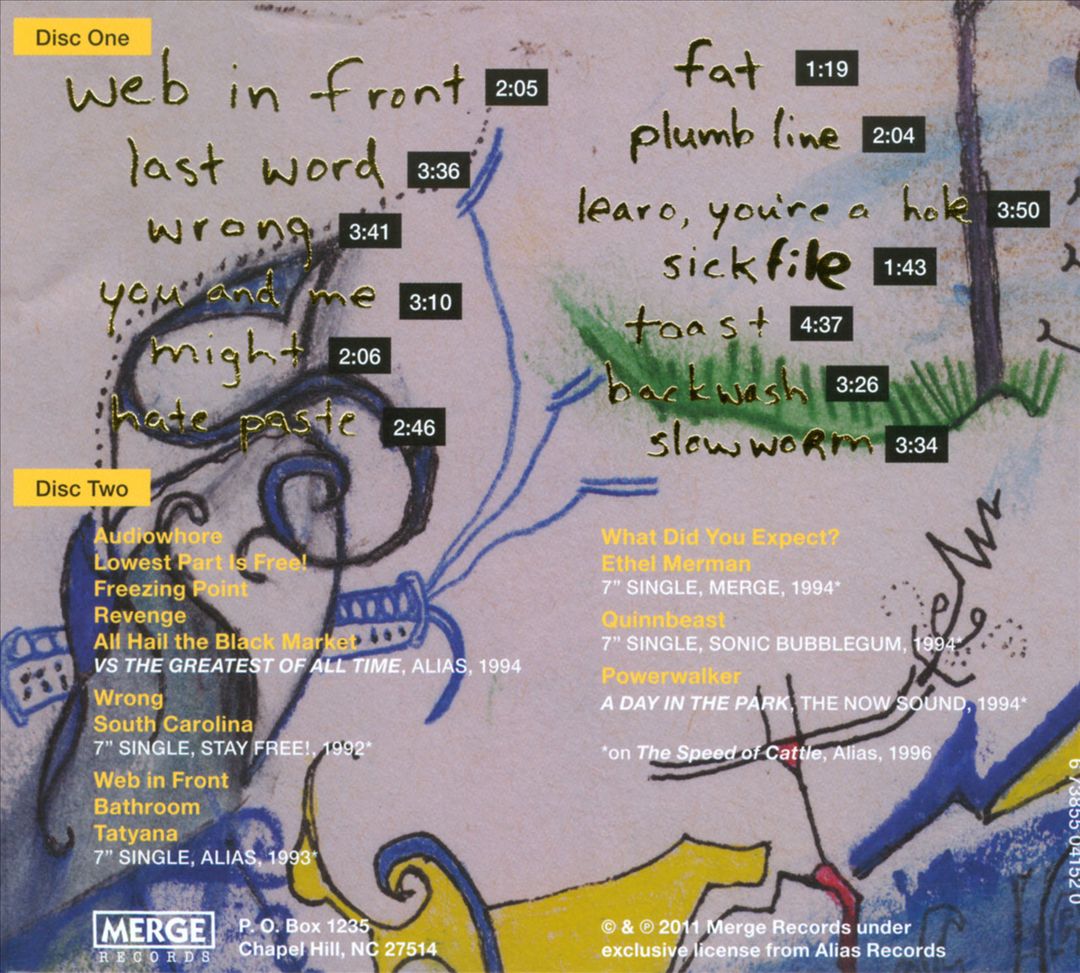 Disc One
web in front 2:05
last word 3:36
wrong 3:41
you and me 3:10
might 2:06
hate paste 2:46
fat 1:19
plumb line 2:04
learo, you're a hole 3:50
sickfile 1:43
toast 4:37
backwash 3:26
slow worm 3:34
Disc Two
Audiowhore
Lowest Part Is Free!
Freezing Point
Revenge
All Hail the Black Market
VS THE GREATEST OF ALL TIME, ALIAS, 1994
Wrong
South Carolina
7” SINGLE, STAY FREE!, 1992*
Web in Front
Bathroom
Tatyana
7” SINGLE, ALIAS, 1993*
What Did You Expect?
Ethel Merman
7” SINGLE, MERGE, 1994*
Quinnbeast
7” SINGLE, SONIC BUBBLEGUM, 1994*
Powerwalker
A DAY IN THE PARK, THE NOW SOUND, 1994*
*on The Speed of Cattle, Alias, 1996
6 73855 04152 0
MERGE
RECORDS
P. O. Box 1235
Chapel Hill, NC 27514
© & ℗ 2011 Merge Records under
exclusive license from Alias Records